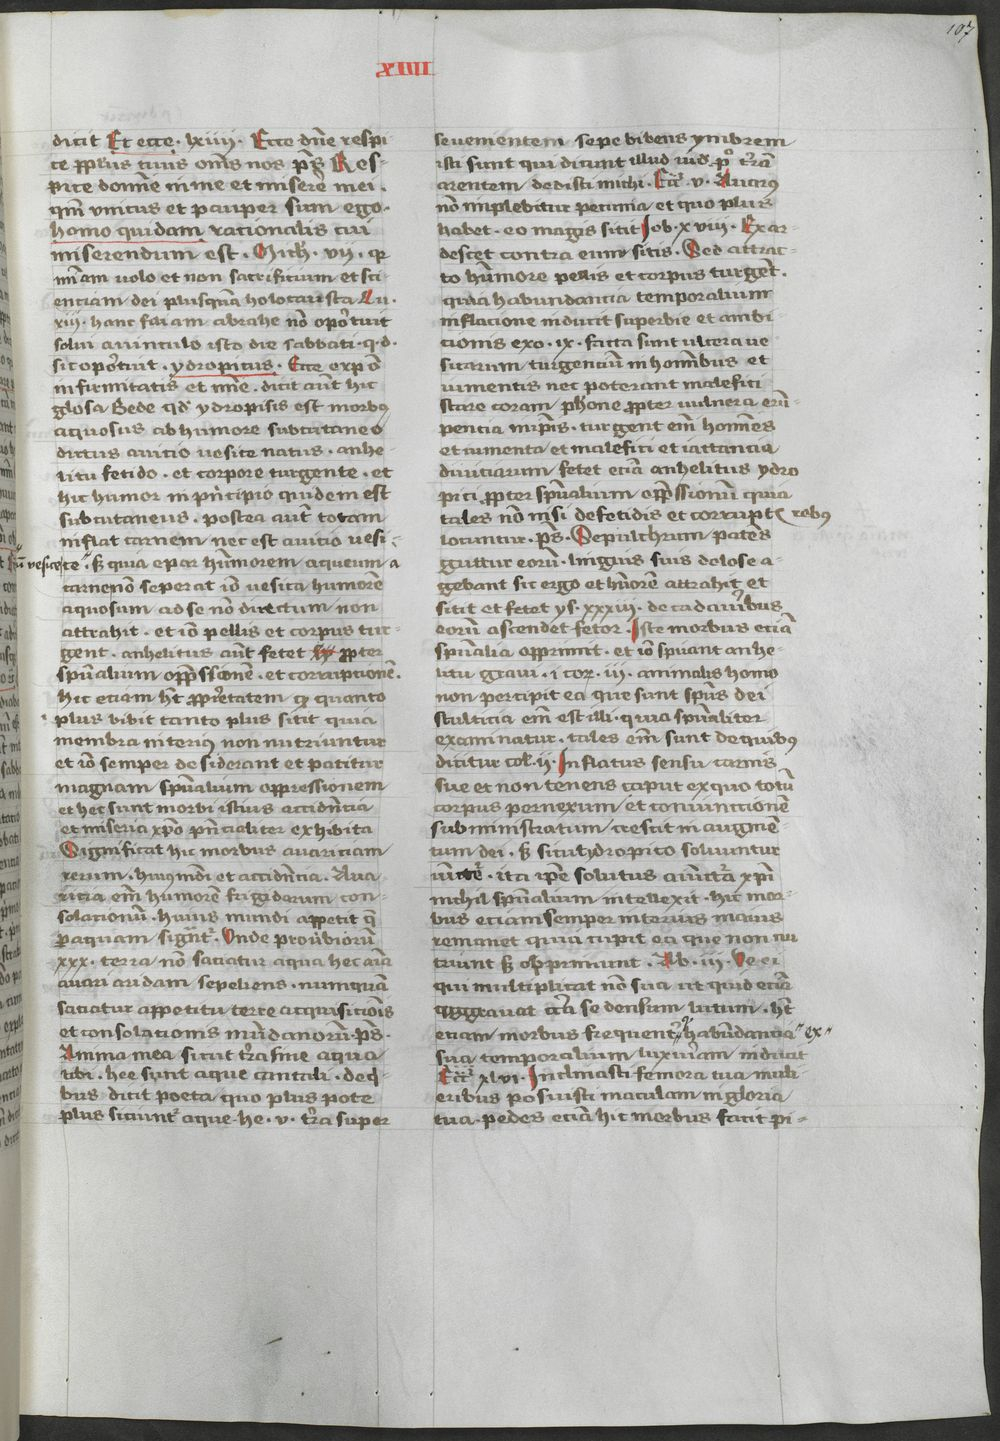 107
XIIII
dicit Et ecce · lxiiii · Ecce dn̄e respi
ce pp̄lus tuus om̄s nos p̄s Res-
pice domīe in me et miserē mei ·
qm̄ vnicus et pauper sum ego ·
homo quidam rationalis cui
miserendum est · Mich̄ · vii · q̄
mīam uolo et non sacrificium et sci
enciam dei plusquā holocausta Lu ·
xiii · hanc filiam abrahe nō oportuit
solui a uinculo isto die sabbati · q · d ·
sic oportuit · ydropicus · Ecce expō
infirmitatis et mīe · dicit aut̄ hic
glosa Bede qd̄ ydropisis est morbꝰ
aquosus ab humore subcutaneo
dictus a uitio uesice natus · anhe-
litu fetido · et corpore turgente · et
hic humor in pn̄cipio quidem est
subcutaneus · postea aut̄ totam
inflat carnem nec est a uitio uesi-
vesice
ce · sꝫ quia epar humorem aqueum a
carne non seperat iō uesica humorē
aquosum ad se nō directum non
attrahit · et iō pellis et corpus tur-
gent · anhelitus aut̄ fetet pp̄ter
spūalium opp̄ssionē · et corruptionē ·
hic etiam ht̄ pp̄rietatem q̄ quanto
plus bibit tanto plus sitit quia
membra interiꝰ non nutriuntur
et iō semper desiderant et patitur
magnam spūalium oppressionem
et hec sunt morbi istius accidn̄cia
et miseria xp̄o pn̄cialiter exhibita
Significat hic morbus auariciam
rerum · huiꝰ mūdi et accidn̄cia · Aua
ricia em̄ humorē frigidorum con-
solationū · huius mundi appetit q̄
p aquam sign̄t · Vnde prouerbiorū
xxx · terra nō saciatur aqua hec aīa
auari aridam sepeliens · numquā
saciatur appetitu terre acquisicionīs
et consolationis mūdanorū · p̄s ·
Anima mea sicut tr̄a sine aqua
tibi · hee sunt aque tantali · de q̄-
bus dicit poeta quo plus pote
plus siciunt̄ aque · he · v · tr̄a super
seuementem sepe bibens ymbrem
isti sunt qui dicunt illud iud̄ · p° tr̄ā
arentem dedisti michi · Ecc̄ · v · Auarꝰ
nō implebitur pecunia et quo plus
habet · eo magis sitit Iob · xviii · Exar-
descet contra eum sitis · Sed attrac-
to humore pellis et corpus turget ·
quia habundancia temporalium
inflacione inducit superbie et ambi-
cionis exo · ix · facta sunt ulcera ue
sicarum turgenciū in hominībus et
iumentis nec poterant malefici
stare coram phāone pp̄ter uulnera erū-
pencia in ip̄is · turgent em̄ homīes
et iumenta et malefici et iactancia
diuiciarum fetet eciā anhelitus ydro
pici pp̄ter spūalium opp̄ssionū quia
tales nō nisi de fetidis et corrupt rebꝰ
locuntur · p̄s · Sepulchrum patēs
guttur eorū · linguis suis dolose a-
gebant sic ergo et hūorē attrahit et
sitit et fetet ys · xxxiiii · de cadaueribus
eorū ascendet fetor · Iste morbus eciā
spūalia opprimit · et iō spirant anhe-
litu graui · i cor̄ · iii · animalis homo
non percipit ea que sunt sp̄us dei
stulticia em̄ est illi · quia spūaliter
examinatur · tales em̄ sunt de quibꝰ
dicitur col̄ · ii · Inflatus sensu carnis
sue et non tenens caput ex quo totū
corpus per nexum et coniunctionē
subministratum crescit in augmē-
tum dei · sꝫ sicut ydropico soluuntur
ita ip̄e solutus a iūct̄a xp̄i
nichil spūalium intellexit · hic mor-
bus eciam semper interius maius
remanet quia cupit ea que non nu
triunt sꝫ opprimunt · Ab · iii · Ve ei
qui multiplicat nō sua ut quid eciā
aggrauat cc̄ra se densum lutum · ht̄
eciam morbus frequent̄ habūdancia ex
sua temporalium luxuriam inducit
Ecc̄ xlvi · Inclinasti femora tua muli
eribus posuisti maculam in gloria
tua · pedes eciā hic morbus facit pi-